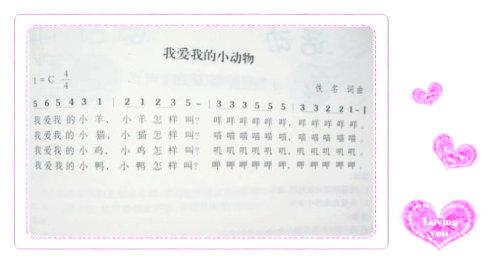 我爱我的小动物
1=C 4/4
佚 名 词曲
5 6 5 4 3 1 | 2 1 2 3 5 - | 3 3 3 5 5 5 | 3 3 2 2 1 - |
我爱我 的 小 羊, 小 羊 怎 样 叫? 咩 咩 咩 咩 咩, 咩 咩 咩 咩 咩。
我爱我 的 小 猫, 小 猫 怎 样 叫? 喵 喵 喵 喵 喵, 喵 喵 喵 喵 喵。
我爱我 的 小 鸡, 小 鸡 怎 样 叫? 叽 叽 叽 叽 叽, 叽 叽 叽 叽 叽。
我爱我 的 小 鸭, 小 鸭 怎 样 叫? 呷 呷 呷 呷 呷, 呷 呷 呷 呷 呷。
Loving
you